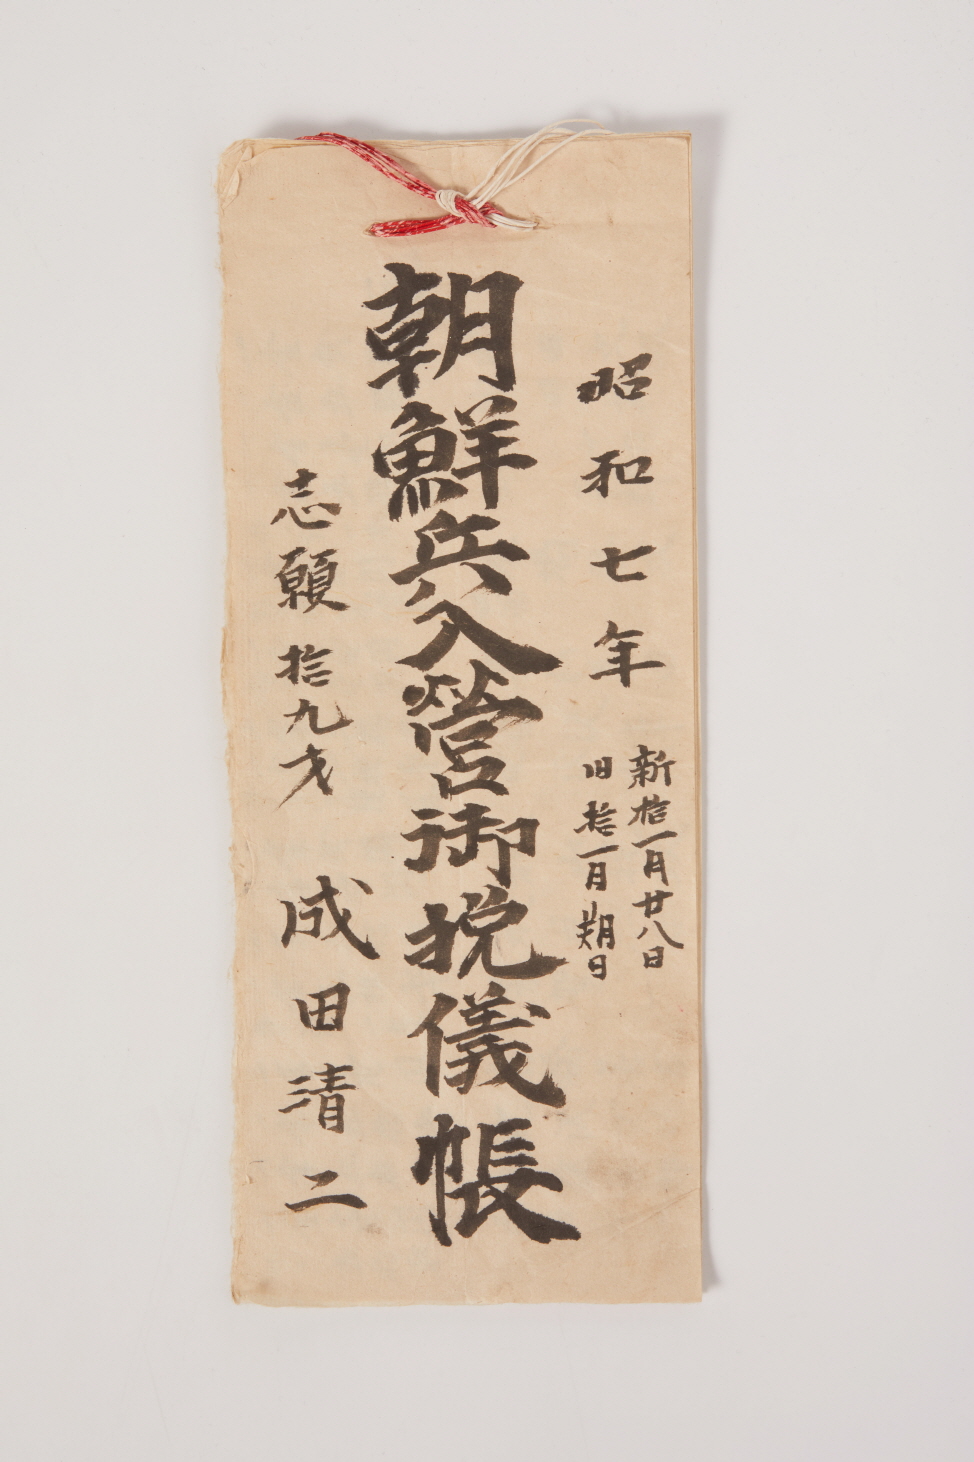 昭和七年
新拾一月廿八日
旧拾一月朔日
朝鮮兵入営御挩儀帳
志願拾九才 成田清二